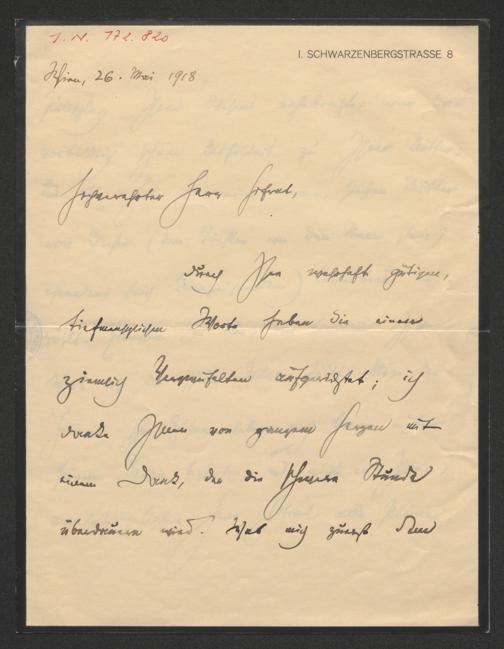 I. N. 172.820
I. SCHWARZENBERGSTRASSE 8
Wien, 26. Mai 1918
Hochverehrter Herr Hofrat,
durch Ihre wahrhaft gütigen,
tiefmenschlichen Worte haben Sie einen
ziemlich Verzweifelten aufgerichtet; ich
danke Ihnen von ganzem Herzen mit
einem Dank, der die schwere Stunde
überdauern wird. Was mich zuerst